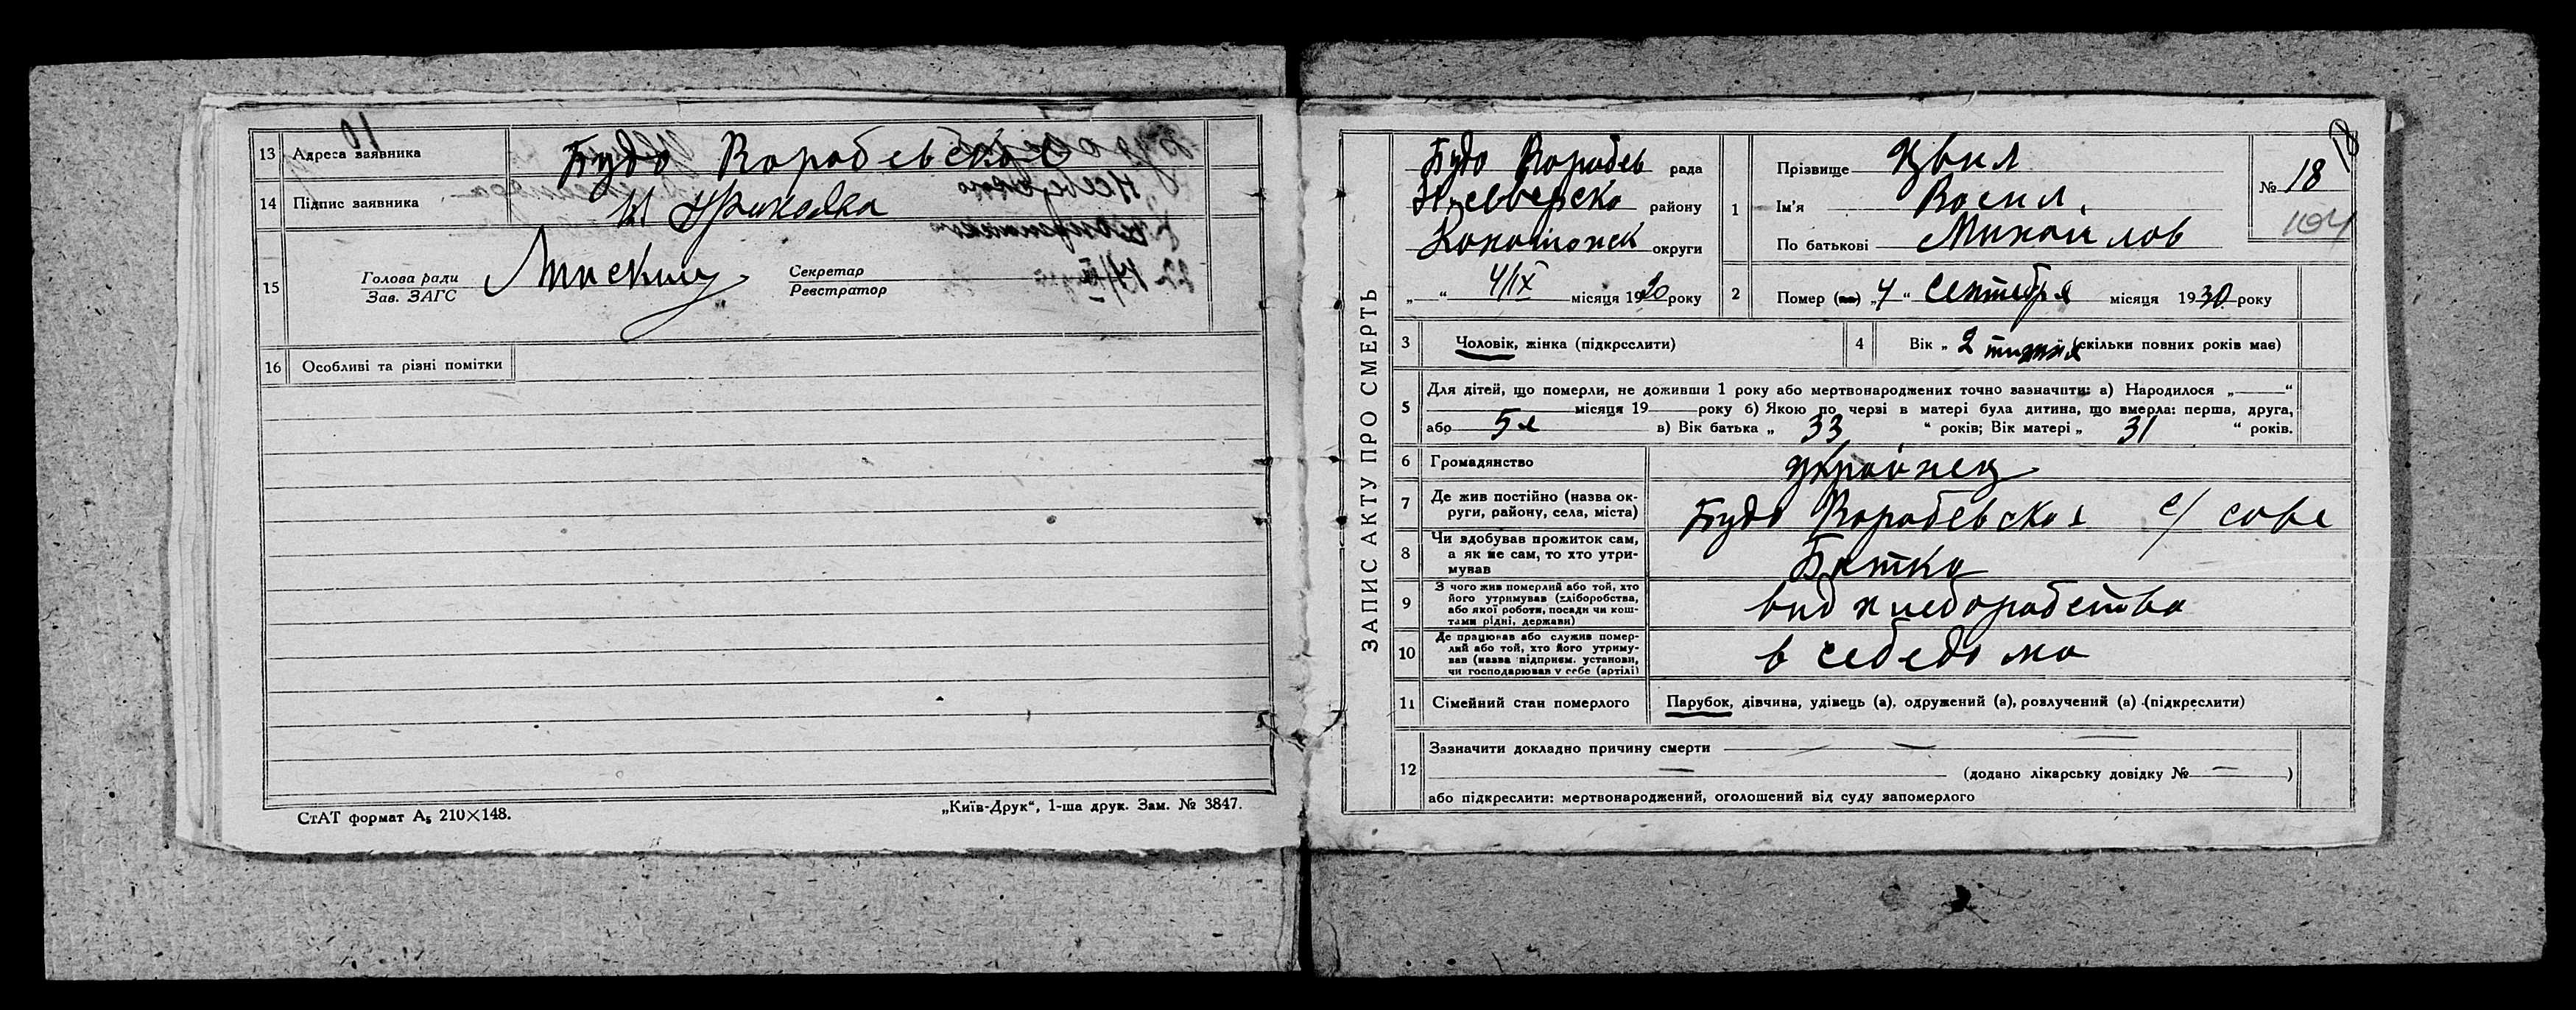 13 Адреса заявника Будо Воробевское
14 Підпис заявника
15 Голова ради
Зав. ЗАГС
Секретар
Реєстратор
16 Особливі та різні помітки
СтАТ формат А₅ 210×148.
„Київ-Друк“, 1-ша друк. Зам. № 3847.
ЗАПИС АКТУ ПРО СМЕРТЬ
Будо Воробев рада
Н,северско району
Конотопск округи
„ “ 4/IX місяця 1930 року
1 Прізвище Цвил
Ім'я Васил,
По батькові Михайлов
№ 18
104
2 Помер (ла) „4“ сентебря місяця 1930 року
3 Чоловік, жінка (підкреслити)
4 Вік „ 2 тижня (скільки повних років має)
5 Для дітей, що померли, не доживши 1 року або мертвонароджених точно зазначити: а) Народилося „ “
місяця 19 року б) Якою по черві в матері була дитина, що вмерла: перша, друга,
або 5я в) Вік батька „ 33 “ років; Вік матері „ 31 “ років.
6 Громадянство украинец
7 Де жив постійно (назва ок-
руги, району, села, міста) Будо Воробевская с/ сове
8 Чи здобував прожиток сам,
а як не сам, то хто утри-
мував Батько
9 З чого жив померлий або той, хто
його утримував (хліборобства,
або якої роботи, посади чи кош-
тами рідні, держави) вид хлеборобства
10 Де працював або служив помер-
лий або той, хто його утриму-
вав (назва підприєм. установи,
чи господарював у себе (артілі) в себе дома
11 Сімейний стан померлого Парубок, дівчина, удівець (а), одружений (а), розлучений (а) (підкреслити)
12 Зазначити докладно причину смерти —
— (додано лікарську довідку № — )
або підкреслити: мертвонароджений, оголошений від суду запомерлого